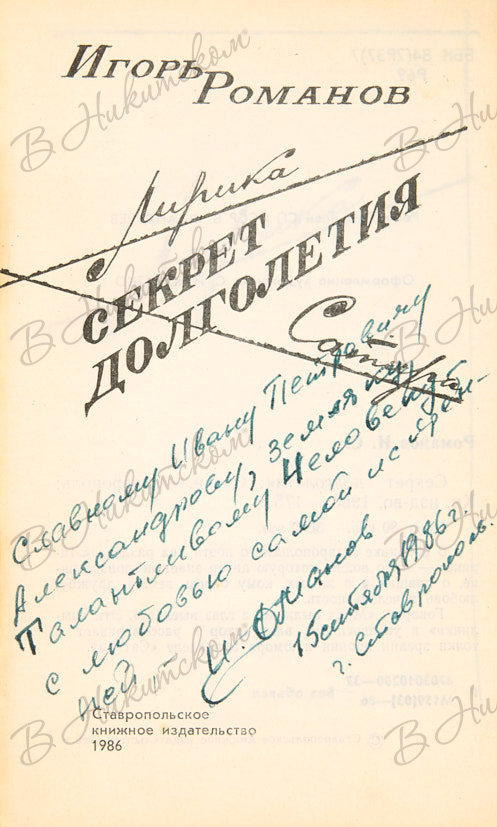 Игорь
Романов
Лирика
СЕКРЕТ
ДОЛГОЛЕТИЯ
Сатира
Славному Ивану Петровичу
Александрову, земляку,
Талантливому Человеку
с любовью самой искрен-
ней –
И. Романов
15 сентября 1986 г.
г. Ставрополь.
Ставропольское
книжное издательство
1986
В Никитском